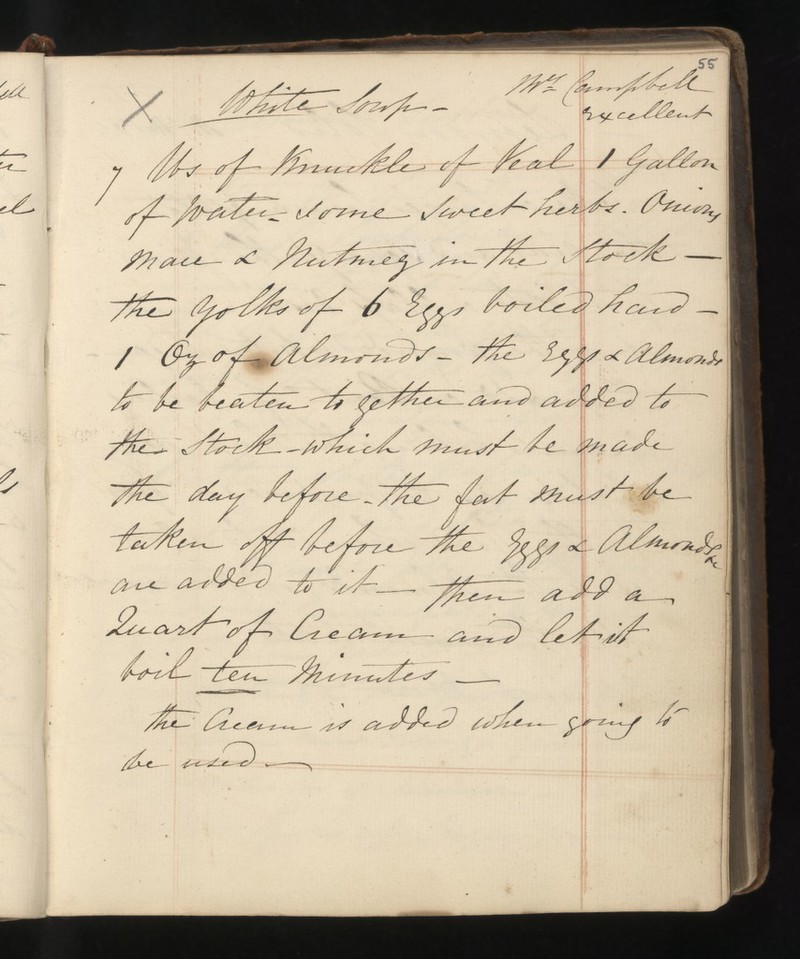 55
X White Soup - Mrs Campbell
excellent
7 lbs of Knuckle of Veal 1 Gallon
of Water - some sweet herbs. Onions
Mace & Nutmeg in the Stock -
the yolks of 6 Eggs boiled hard -
1 Oz of Almonds - the Eggs & Almonds
to be beaten together and added to
the Stock - which must be made
the day before - the fat must be
taken off before the Eggs & Almonds &c
are added to it - then add a
Quart of Cream and let it
boil ten Minutes -
the Cream is added when going to
be used -